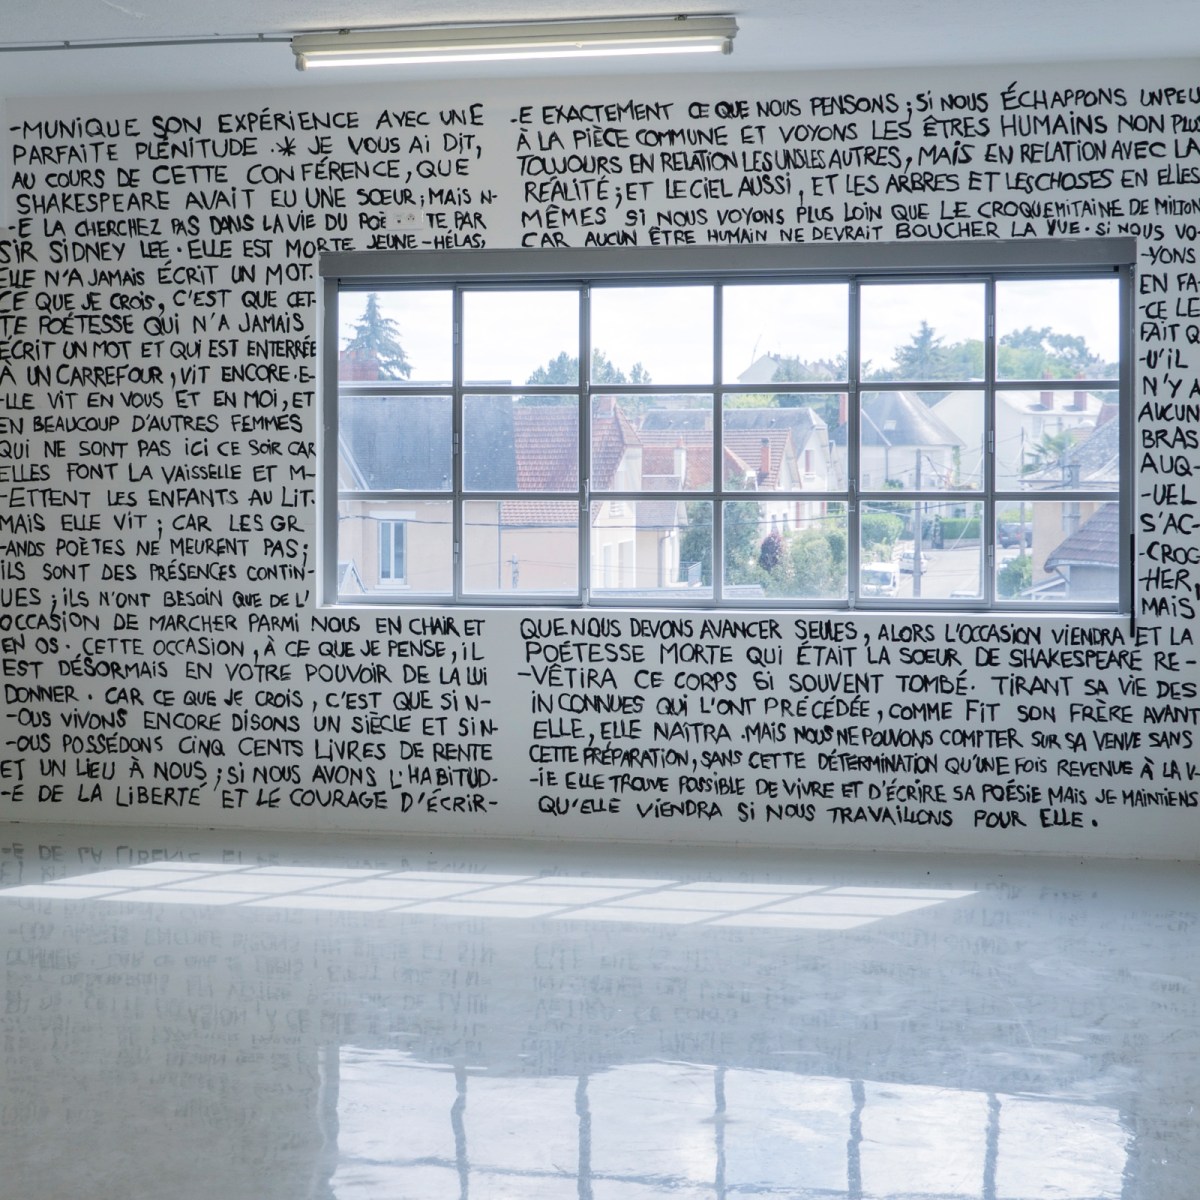 -MUNIQUE SON EXPÉRIENCE AVEC UNE
PARFAITE PLÉNITUDE .* JE VOUS AI DIT,
AU COURS DE CETTE CONFÉRENCE, QUE
SHAKESPEARE AVAIT EU UNE SŒUR ; MAIS N-
-E LA CHERCHEZ PAS DANS LA VIE DU POÈ TE PAR
SIR SIDNEY LEE . ELLE EST MORTE JEUNE - HÉLAS,
ELLE N'A JAMAIS ÉCRIT UN MOT.
CE QUE JE CROIS, C'EST QUE CET-
TE POÉTESSE QUI N'A JAMAIS
ÉCRIT UN MOT ET QUI EST ENTERRÉE
À UN CARREFOUR, VIT ENCORE . E-
-LLE VIT EN VOUS ET EN MOI, ET
EN BEAUCOUP D'AUTRES FEMMES
QUI NE SONT PAS ICI CE SOIR CAR
ELLES FONT LA VAISSELLE ET M-
-ETTENT LES ENFANTS AU LIT.
MAIS ELLE VIT ; CAR LES GR
-ANDS POÈTES NE MEURENT PAS ;
ILS SONT DES PRÉSENCES CONTIN-
UES ; ILS N'ONT BESOIN QUE DE L'
OCCASION DE MARCHER PARMI NOUS EN CHAIR ET
EN OS . CETTE OCCASION, À CE QUE JE PENSE, IL
EST DÉSORMAIS EN VOTRE POUVOIR DE LA LUI
DONNER . CAR CE QUE JE CROIS, C'EST QUE SI N-
-OUS VIVONS ENCORE DISONS UN SIÈCLE ET SI N-
-OUS POSSÉDONS CINQ CENTS LIVRES DE RENTE
ET UN LIEU À NOUS ; SI NOUS AVONS L'HABITUD-
-E DE LA LIBERTÉ ET LE COURAGE D'ÉCRIR-
-E EXACTEMENT CE QUE NOUS PENSONS ; SI NOUS ÉCHAPPONS UN PEU
À LA PIÈCE COMMUNE ET VOYONS LES ÊTRES HUMAINS NON PLUS
TOUJOURS EN RELATION LES UNS LES AUTRES, MAIS EN RELATION AVEC LA
RÉALITÉ ; ET LE CIEL AUSSI, ET LES ARBRES ET LES CHOSES EN ELLES
MÊMES SI NOUS VOYONS PLUS LOIN QUE LE CROQUEMITAINE DE MILTON
CAR AUCUN ÊTRE HUMAIN NE DEVRAIT BOUCHER LA VUE . SI NOUS VO-
-YONS
EN FA-
-CE LE
FAIT Q
-U'IL
N'Y A
AUCUN
BRAS
AUQ-
-UEL
S'AC-
-CROC
-HER,
MAIS
QUE NOUS DEVONS AVANCER SEULES, ALORS L'OCCASION VIENDRA ET LA
POÉTESSE MORTE QUI ÉTAIT LA SŒUR DE SHAKESPEARE RE-
-VÊTIRA CE CORPS SI SOUVENT TOMBÉ. TIRANT SA VIE DES
INCONNUES QUI L'ONT PRÉCÉDÉE, COMME FIT SON FRÈRE AVANT
ELLE, ELLE NAÎTRA . MAIS NOUS NE POUVONS COMPTER SUR SA VENUE SANS
CETTE PRÉPARATION, SANS CETTE DÉTERMINATION QU'UNE FOIS REVENUE À LA V-
-IE ELLE TROUVE POSSIBLE DE VIVRE ET D'ÉCRIRE SA POÉSIE MAIS JE MAINTIENS
QU'ELLE VIENDRA SI NOUS TRAVAILLONS POUR ELLE.